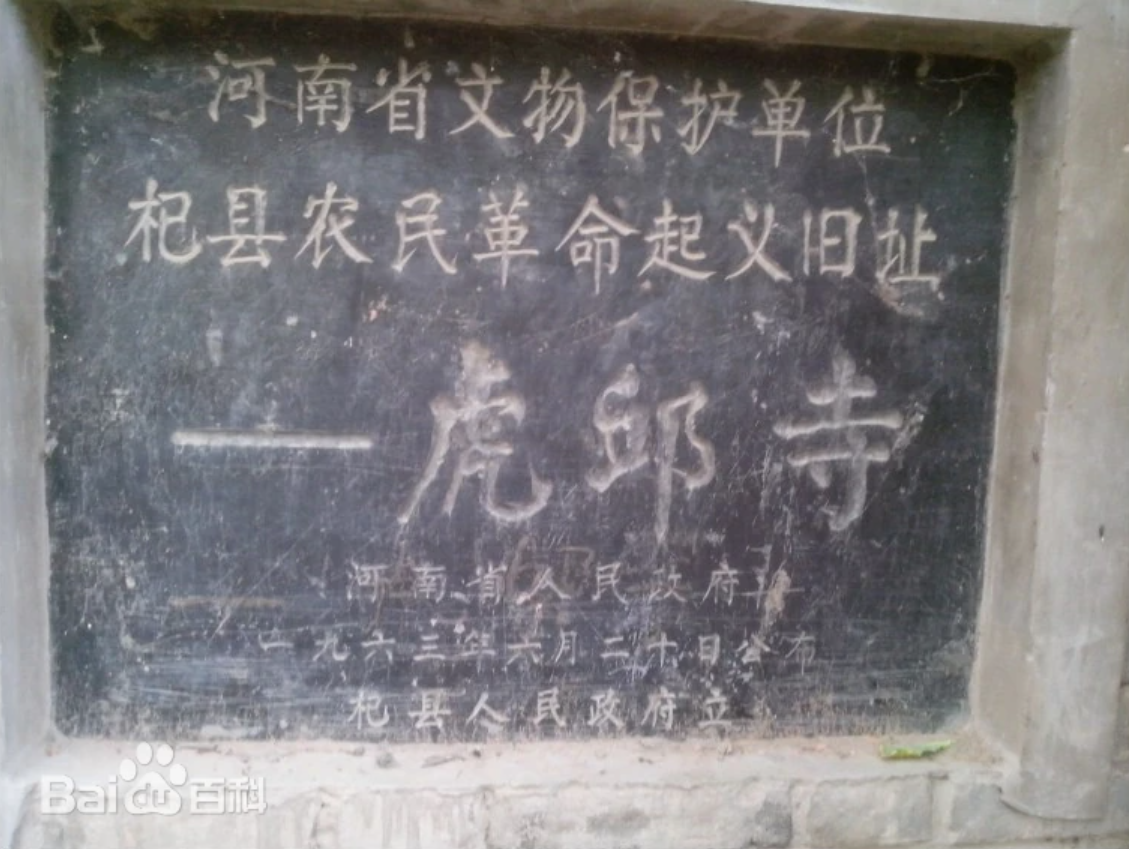 河南省文物保护单位
杞县农民革命起义旧址
—虎邱寺
河南省人民政府
一九六三年六月二十日公布
杞县人民政府立
Bai du 百科